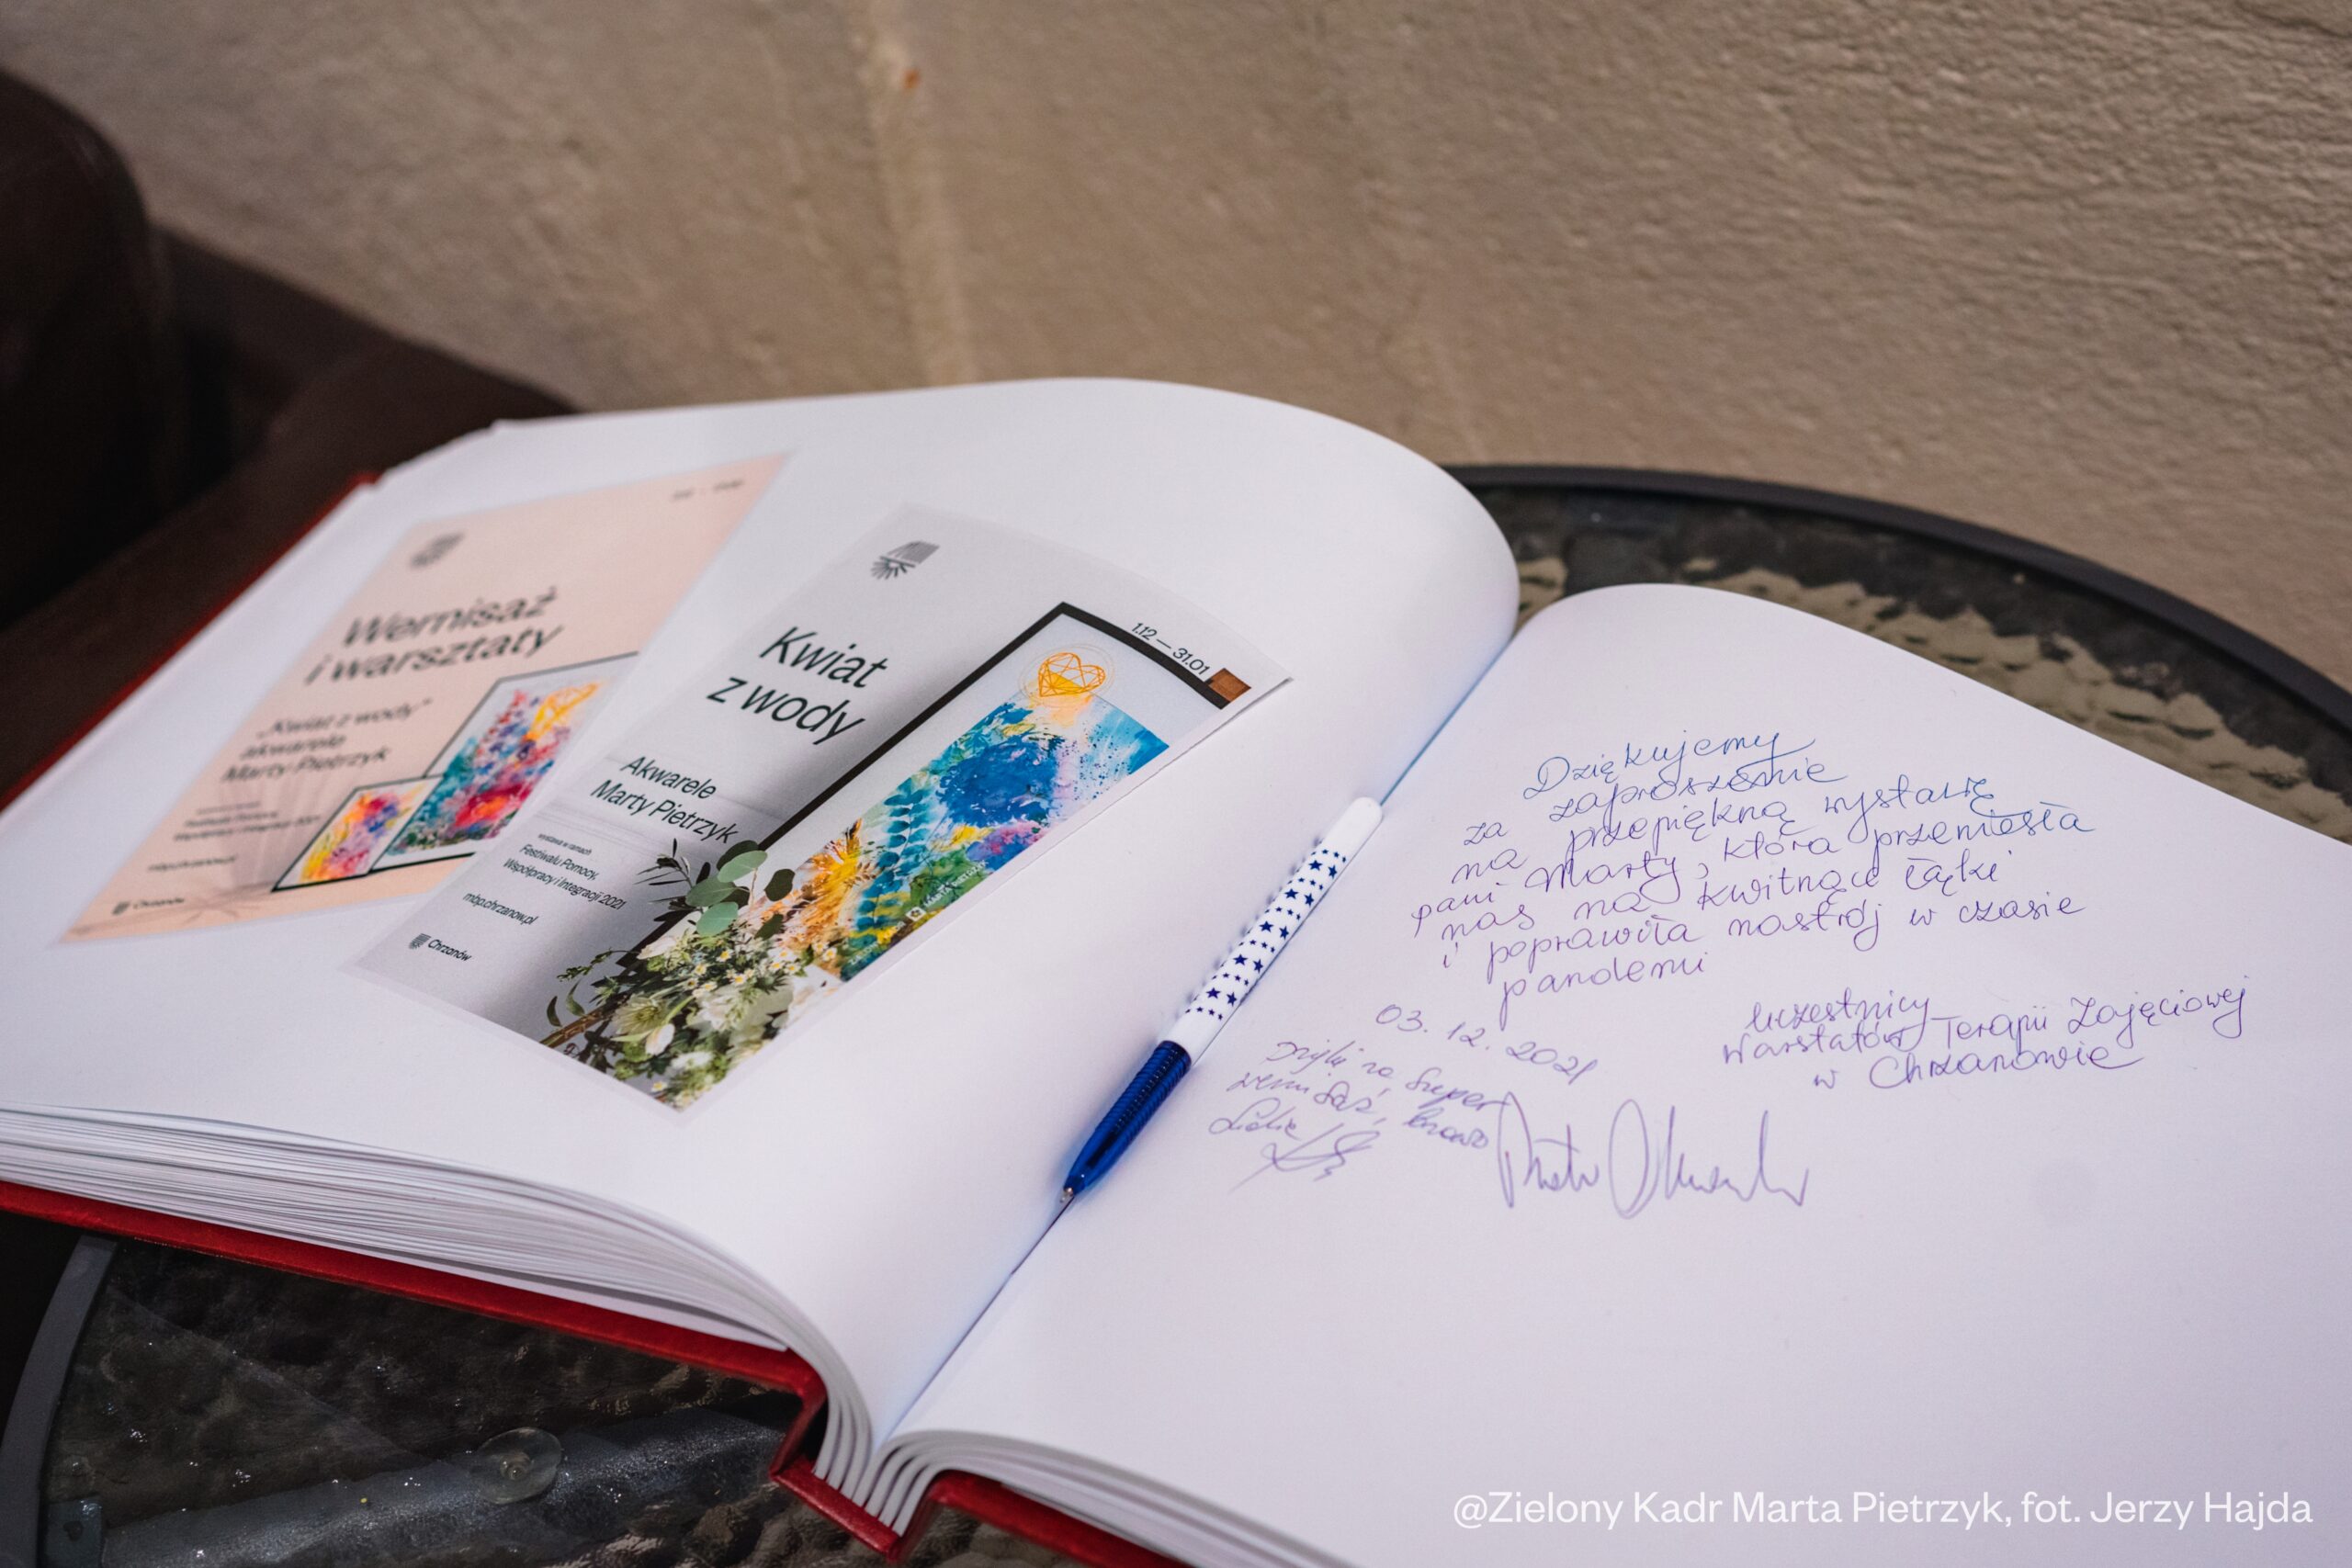 Wernisaż
i warsztaty
„Kwiat z wody"
akwarele
Marty Pietrzyk
mbp.chrzanow.pl
Chrzanów
Kwiat
z wody
1.12 — 31.01
Akwarele
Marty Pietrzyk
wystawa w ramach
Festiwalu Pomocy,
Współpracy i Integracji 2021
mbp.chrzanow.pl
Chrzanów
Dziękujemy
za zaproszenie
na przepiękną wystawę
pani Marty, która przeniosła
nas na kwitnące łąki
i poprawiła nastrój w czasie
pandemi
03. 12. 2021
Uczestnicy
Warsztatów Terapii Zajęciowej
w Chrzanowie
super
wernisaż, brawo
@Zielony Kadr Marta Pietrzyk, fot. Jerzy Hajda